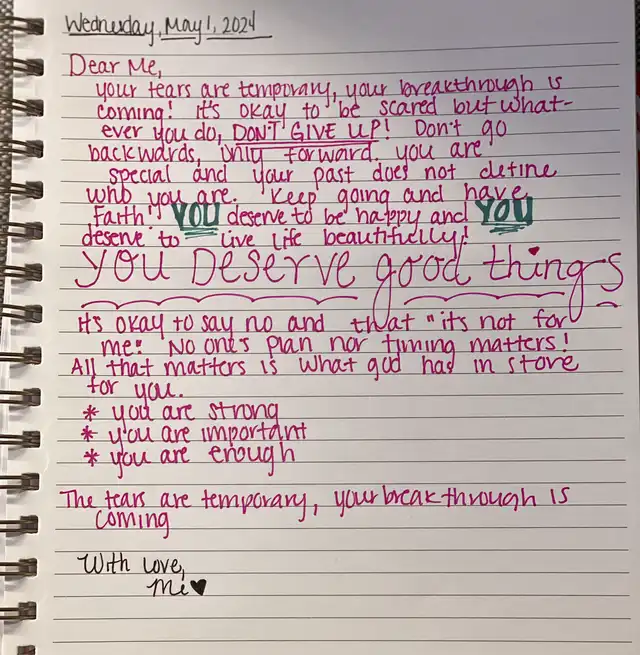 Wednesday, May 1, 2024
Dear Me,
your tears are temporary, your breakthrough is
coming! it's okay to be scared but what-
ever you do, DON'T GIVE UP! Don't go
backwards, only forward. you are
special and your past does not define
who you are. Keep going and have
faith! YOU deserve to be happy and YOU
deserve to live life beautifully!
you Deserve good things
it's okay to say no and that "it's not for
me." No one's plan nor timing matters!
All that matters is what god has in store
for you.
* you are strong
* you are important
* you are enough
The tears are temporary, your breakthrough is
coming
With love,
Me♥